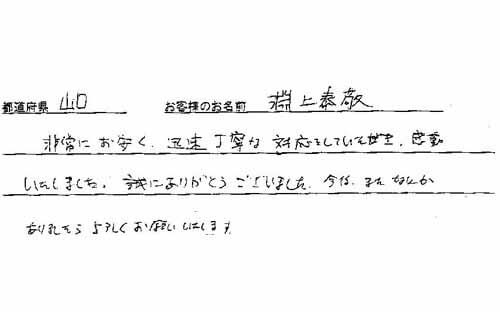 都道府県 山口 お客様のお名前 淵上泰敬
非常にお安く、迅速丁寧な対応をしていただき、感動
いたしました。誠にありがとうございました。今後、またなにか
ありましたらよろしくお願いいたします